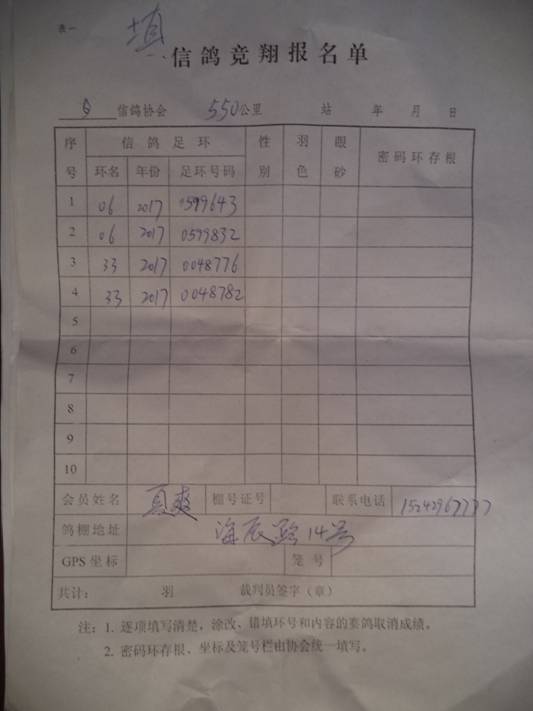 表一
填
信鸽竞翔报名单
信鸽协会 550公里 站 年 月 日
序号 信鸽足环 性别 羽色 眼砂 密码环存根
环名 年份 足环号码
1 06 2017 0599643
2 06 2017 0599832
3 33 2017 0048776
4 33 2017 0048782
5
6
7
8
9
10
会员姓名 夏爽 棚号证号 联系电话
鸽棚地址 海辰路14号
GPS坐标 笼号
共计: 羽 裁判员签字(章)
注:1. 逐项填写清楚,涂改、错填环号和内容的赛鸽取消成绩。
2. 密码环存根、坐标及笼号栏由协会统一填写。